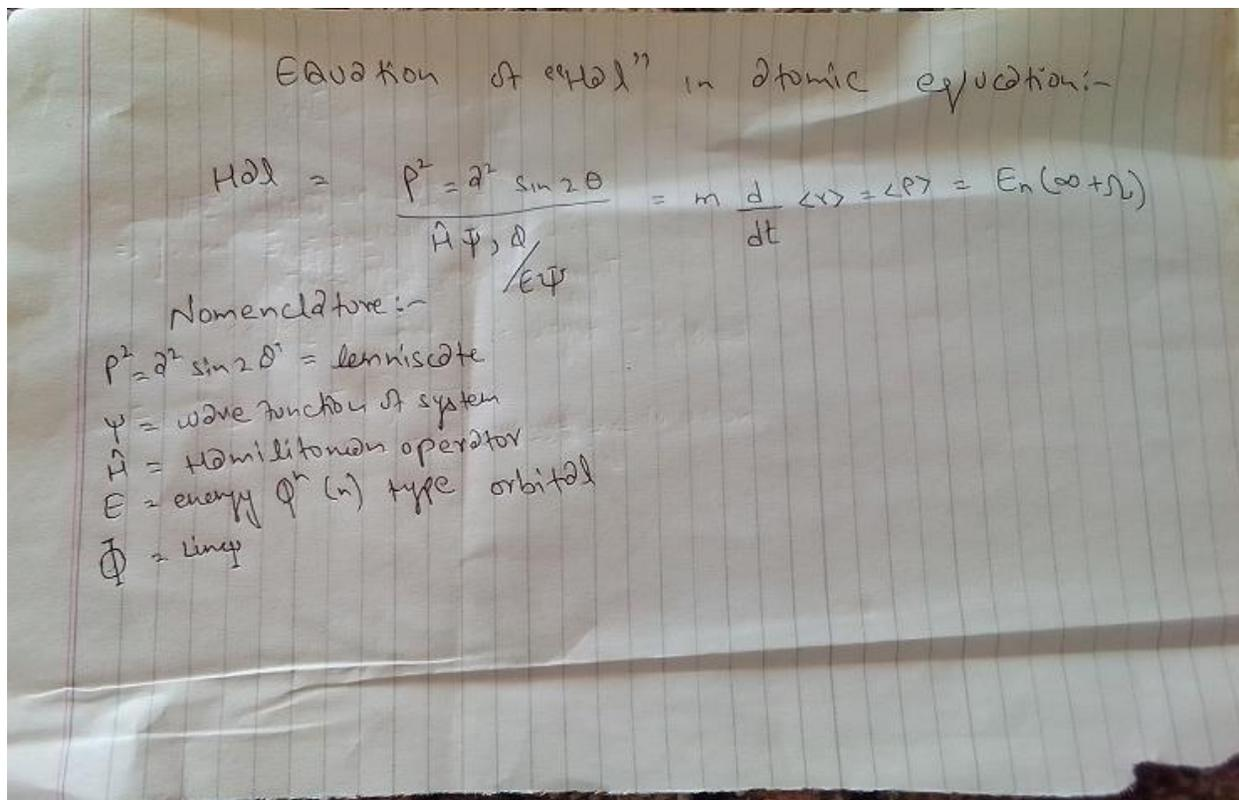 EQuation of "Hal" in atomic equcation:-
Hal = P² = a² sin 2θ / Ĥψ, Q/Eψ = m d/dt <r> = <P> = En (∞ + Ω)
Nomenclature:-
P² = a² sin 2θ = lemniscate
ψ = wave function of system
Ĥ = Hamilitonian operator
E = energy Qⁿ (n) type orbital
Φ =